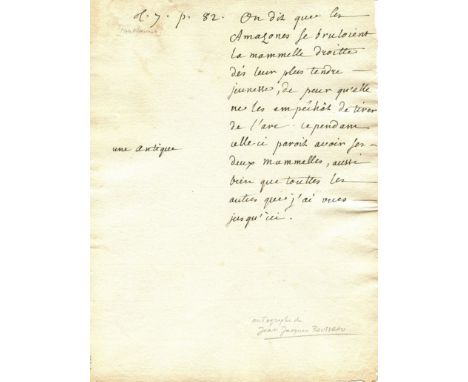 d. 7. p. 82. On dit que les
Amazones se bruloient
la mammelle droitte
dés leur plus tendre
jeunesse, de peur qu'elle
ne les empêchât de tirer
de l'arc. cependant
une antique
celle-ci paroit avoir ses
deux mammelles, aussi
bien que touttes les
autres que j'ai vues
jusqu'ici.
autographe de
Jean Jacques ROUSSEAU